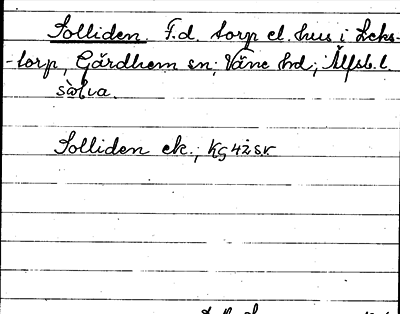 Solliden. F.d. torp el. hus i Leks-
-torp, Gärdhem sn; Väne hd; Älfsb. l.
sòlıa.
Solliden ek.; Kg 42 sv